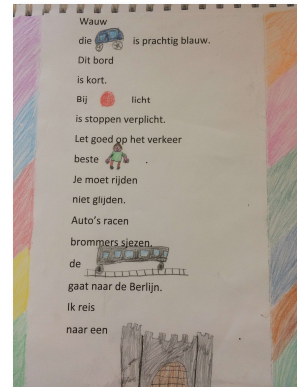 Wauw
die is prachtig blauw.
Dit bord
is kort.
Bij licht
is stoppen verplicht.
Let goed op het verkeer
beste .
Je moet rijden
niet glijden.
Auto's racen
brommers sjezen.
de
gaat naar de Berlijn.
Ik reis
naar een